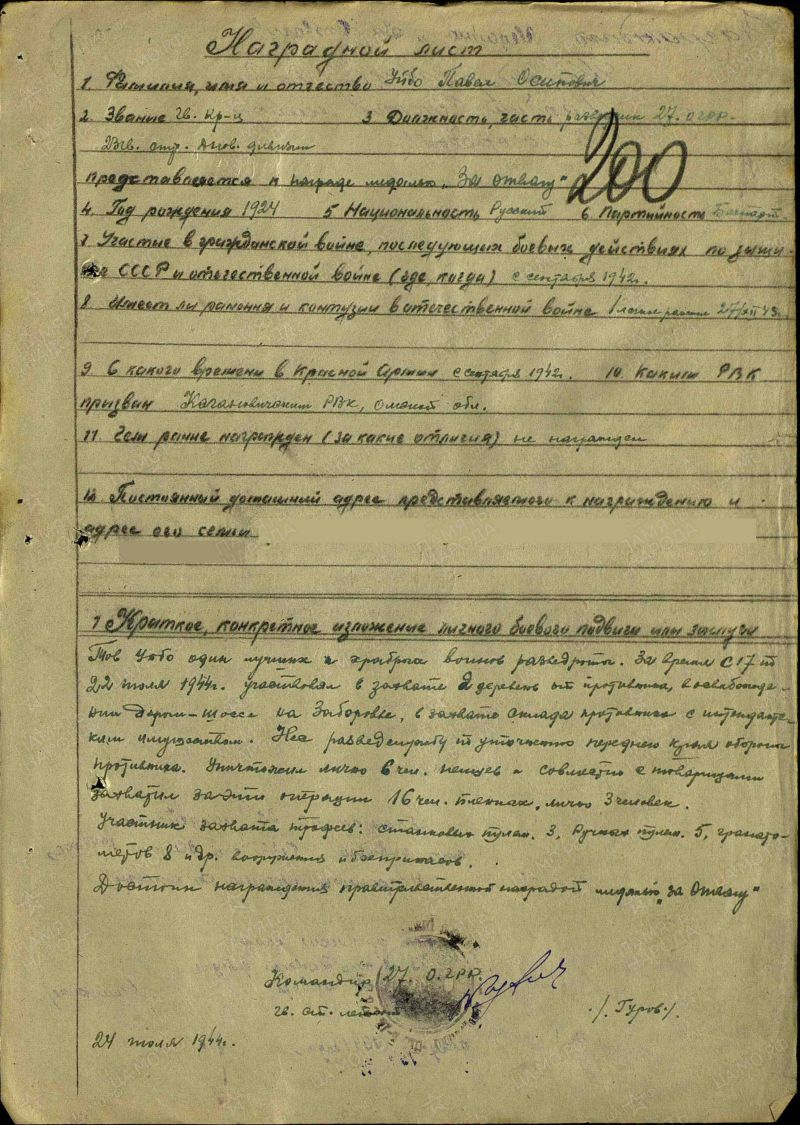 Наградной лист
1. Фамилия, имя и отчество Уйбо Павел Осипович
2. Звание гв. кр-ц 3. Должность, часть разведчик 27. огрр.
23 гв. стр. дивизии
представляется к награде медалью „За отвагу"
200
4. Год рождения 1924 5 Национальность Русский 6. Партийность Беспарт.
7 Участие в гражданской войне, последующих боевых действиях по защи-
те СССР и отечественной войне (где, когда) с сентября 1942г.
8. Имеет ли ранения и контузии в отечественной войне 1 легкое ранение 27/XII 43г.
9. С какого времени в Красной Армии с сентября 1942г. 10. Каким РВК
призван Кагановическим РВК, Омской обл.
11. Чем ранее награжден (за какие отличия) не награжден
12. Постоянный домашний адрес представляемого к награждению и
адрес его семьи
1 Краткое, конкретное изложение личного боевого подвига или заслуги
Тов Уйбо один лучших и храбрых воинов разведроты. За время с 17 по
22 июля 1944г. участвовал в захвате 2 деревень от противника, в освобожде-
нии шоссе на Заборовье, в захвате склада противника с интендантс-
ким имуществом. Нес разведслужбу по уточнению переднего края обороны
противника. Уничтожил лично 6 чел. немцев и совместно с товарищами
захватил за эти операции 16 чел. пленных, лично 3 человек.
Участник захвата трофеев: станковых пулем. 3, ручных пулем. 5, гранато-
метов 8 и др. вооружения и боеприпасов.
Достоин награждения правительственной наградой медалью „за Отвагу"
Командир 27. О.грр.
гв. ст. лейтен
/. Гуров./
24 июля 1944г.